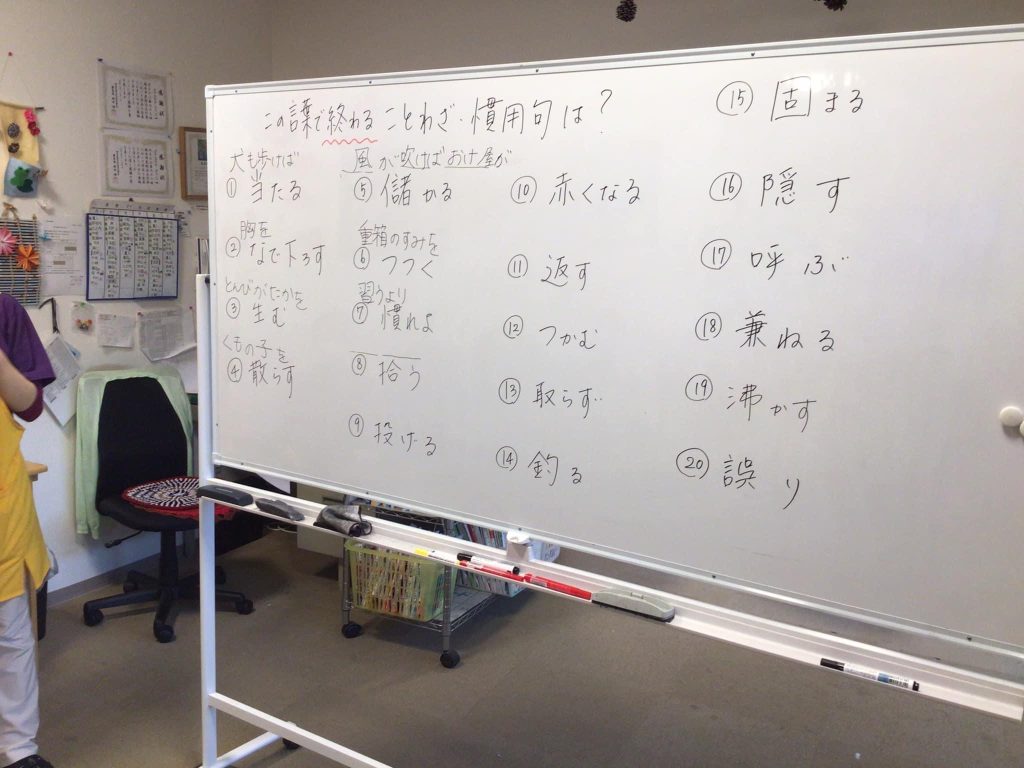 この言葉で終わることわざ・慣用句は?
犬も歩けば
① 当たる
胸を
② なで下ろす
とんびがたかを
③ 生む
くもの子を
④ 散らす
風が吹けばおけ屋が
⑤ 儲かる
重箱のすみを
⑥ つつく
習うより
⑦ 慣れよ
⑧ 拾う
⑨ 投げる
⑩ 赤くなる
⑪ 返す
⑫ つかむ
⑬ 取らず
⑭ 釣る
⑮ 固まる
⑯ 隠す
⑰ 呼ぶ
⑱ 兼ねる
⑲ 沸かす
⑳ 誤り
感謝状
感謝状